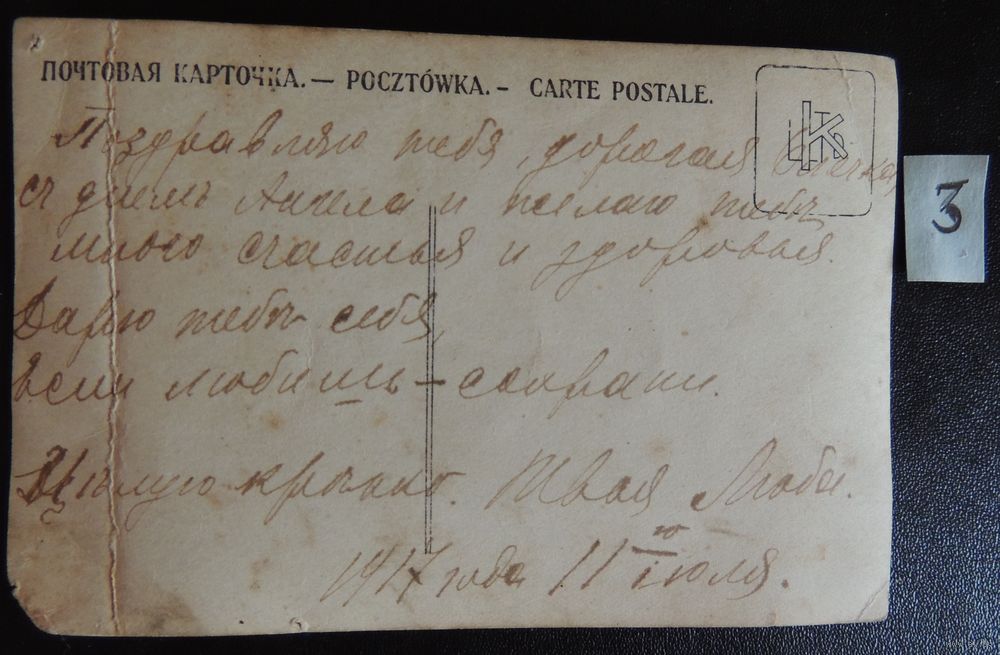 ПОЧТОВАЯ КАРТОЧКА. — POCZTÓWKA. - CARTE POSTALE.
Поздравляю тебя, дорогая Олечка,
съ днемъ Ангела и желаю тебѣ
много счастья и здоровья.
Дарю тебѣ себя,
Если любишь – сохрани.
Цѣлую крѣпко. Твоя Люба.
1917 года 11го іюля.
3